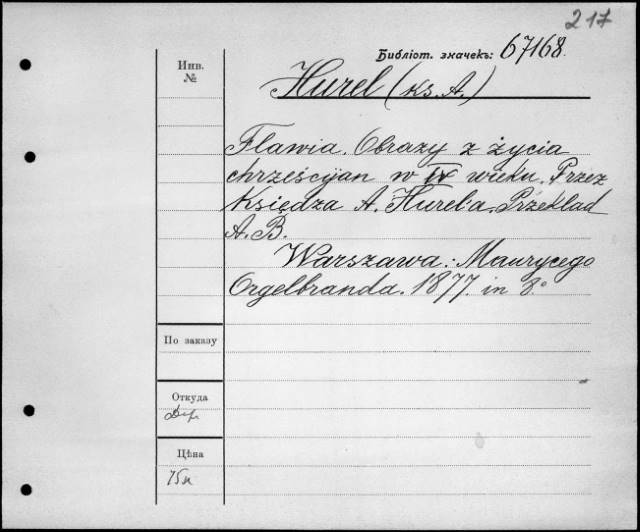 217
Библіот. значекъ: 67168.
Инв.
№
Hurel (ks. A.)
Flawia. Obrazy z życia
chrześcijan w IV wieku. Przez
Księdza A. Hurel'a. Przekład
A. B.
Warszawa: Maurycego
Orgelbranda. 1877. in 8.°
По заказу
Откуда
Цѣна
75к